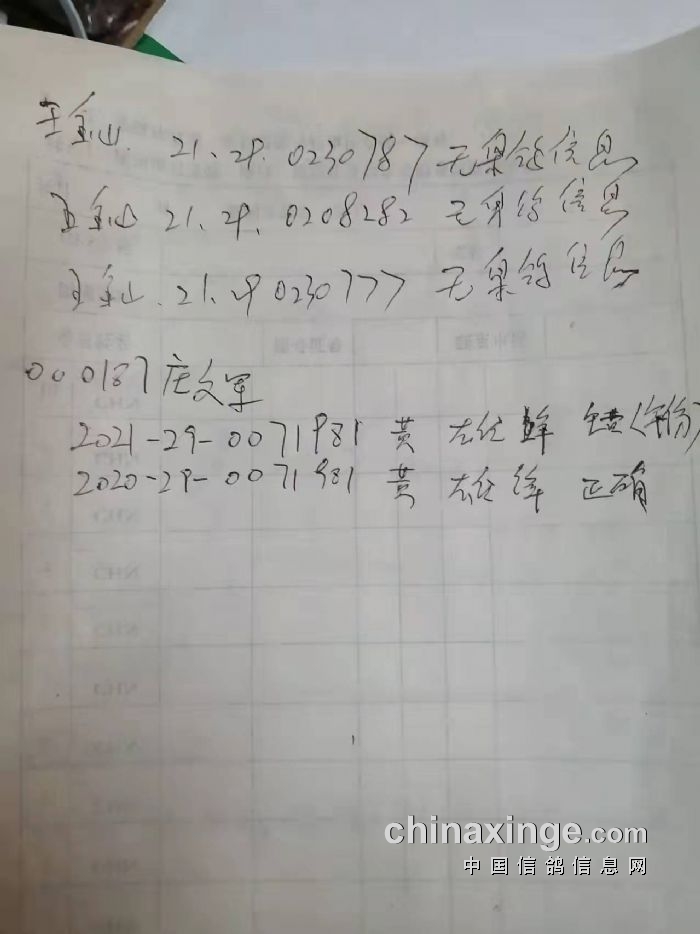 王金山. 21.29.0230787 无集鸽信息
王金山 21.29.0208282 无集鸽信息
王金山. 21.29 0230777 无集鸽信息
000187 庄文军
2021-29-0071981 黄 雄 错(年份)
2020-29-0071981 黄 雄 正确
chinaxinge.com
中国信鸽信息网